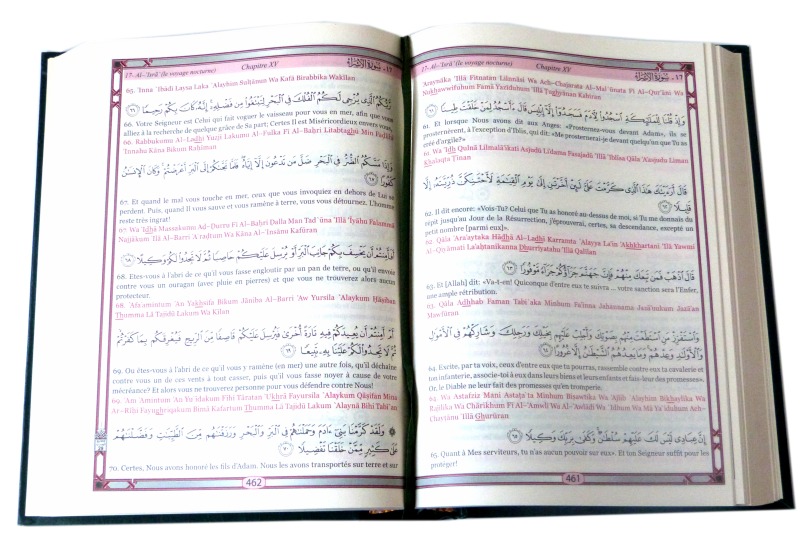 17- Al-'Isrâ' (le voyage nocturne)
Chapitre XV
١٧ - سورة الإسراء
'Araynâka 'Illâ Fitnatan Lilnnâsi Wa Ach-Chajarata Al-Mal`ûnata Fî Al-Qur'âni Wa
Nukhawwifuhum Famâ Yazîduhum 'Illâ Ţughyânan Kabîran
وَإِذْ قُلْنَا لِلْمَلَٰٓئِكَةِ ٱسْجُدُوا۟ لِءَادَمَ فَسَجَدُوٓا۟ إِلَّآ إِبْلِيسَ قَالَ ءَأَسْجُدُ لِمَنْ خَلَقْتَ طِينًا ٦١
61. Et lorsque Nous avons dit aux Anges: «Prosternez-vous devant Adam», ils se
prosternèrent, à l'exception d'Iblis, qui dit: «Me prosternerai-je devant quelqu'un que Tu as
créé d'argile?»
61. Wa 'Idh Qulnâ Lilmalâ'ikati Asjudû Li'dama Fasajadû 'Illâ 'Iblîsa Qâla 'A'asjudu Liman
Khalaqta Ţînan
قَالَ أَرَءَيْتَكَ هَٰذَا ٱلَّذِى كَرَّمْتَ عَلَىَّ لَئِنْ أَخَّرْتَنِ إِلَىٰ يَوْمِ ٱلْقِيَٰمَةِ لَأَحْتَنِكَنَّ ذُرِّيَّتَهُۥٓ إِلَّا
قَلِيلًا ٦٢
62. Il dit encore: «Vois-Tu? Celui que Tu as honoré au-dessus de moi, si Tu me donnais du
répit jusqu'au Jour de la Résurrection, j'éprouverai, certes, sa descendance, excepté un
petit nombre [parmi eux]».
62. Qâla 'Ara'aytaka Hâdhâ Al-Ladhî Karramta `Alayya La'in 'Akhkhartani 'Ilâ Yawmi
Al-Qiyâmati La'aĥtanikanna Dhurriyatahu 'Illâ Qalîlan
قَالَ ٱذْهَبْ فَمَن تَبِعَكَ مِنْهُمْ فَإِنَّ جَهَنَّمَ جَزَآؤُكُمْ جَزَآءً مَّوْفُورًا ٦٣
63. Et [Allah] dit: «Va-t-en! Quiconque d'entre eux te suivra ... votre sanction sera l'Enfer,
une ample rétribution.
63. Qâla Adhhab Faman Tabi`aka Minhum Fa'inna Jahannama Jazâ'uukum Jazâ'an
Mawfûran
وَٱسْتَفْزِزْ مَنِ ٱسْتَطَعْتَ مِنْهُم بِصَوْتِكَ وَأَجْلِبْ عَلَيْهِم بِخَيْلِكَ وَرَجِلِكَ وَشَارِكْهُمْ فِى ٱلْأَمْوَٰلِ
وَٱلْأَوْلَٰدِ وَعِدْهُمْ وَمَا يَعِدُهُمُ ٱلشَّيْطَٰنُ إِلَّا غُرُورًا ٦٤
64. Excite, par ta voix, ceux d'entre eux que tu pourras, rassemble contre eux ta cavalerie et
ton infanterie, associe-toi à eux dans leurs biens et leurs enfants et fais-leur des promesses».
Or, le Diable ne leur fait des promesses qu'en tromperie.
64. Wa Astafziz Mani Astaţa`ta Minhum Bişawtika Wa 'Ajlib `Alayhim Bikhaylika Wa
Rajilika Wa Chârikhum Fî Al-'Amwli Wa Al-'Awlâdi Wa `Idhum Wa Mâ Ya`iduhum Ach-
Chayţânu 'Illâ Ghurûran
إِنَّ عِبَادِى لَيْسَ لَكَ عَلَيْهِمْ سُلْطَٰنٌ وَكَفَىٰ بِرَبِّكَ وَكِيلًا ٦٥
65. Quant à Mes serviteurs, tu n'as aucun pouvoir sur eux». Et ton Seigneur suffit pour les
protéger!
461
17- Al-'Isrâ' (le voyage nocturne)
Chapitre XV
١٧ - سورة الإسراء
65. 'Inna `Ibâdî Laysa Laka `Alayhim Sulţânun Wa Kafá Birabbika Wakîlan
رَّبُّكُمُ ٱلَّذِى يُزْجِى لَكُمُ ٱلْفُلْكَ فِى ٱلْبَحْرِ لِتَبْتَغُوا۟ مِن فَضْلِهِۦٓ إِنَّهُۥ كَانَ بِكُمْ رَحِيمًا ٦٦
66. Votre Seigneur est Celui qui fait voguer le vaisseau pour vous en mer, afin que vous
alliez à la recherche de quelque grâce de Sa part; Certes Il est Miséricordieux envers vous.
66. Rabbukumu Al-Ladhî Yuzjî Lakumu Al-Fulka Fî Al-Baĥri Litabtaghû Min Fađlihi
'Innahu Kâna Bikum Raĥîman
وَإِذَا مَسَّكُمُ ٱلضُّرُّ فِى ٱلْبَحْرِ ضَلَّ مَن تَدْعُونَ إِلَّآ إِيَّاهُ فَلَمَّا نَجَّىٰكُمْ إِلَى ٱلْبَرِّ أَعْرَضْتُمْ وَكَانَ ٱلْإِنسَٰنُ
كَفُورًا ٦٧
67. Et quand le mal vous touche en mer, ceux que vous invoquiez en dehors de Lui se
perdent. Puis, quand Il vous sauve et vous ramène à terre, vous vous détournez. L'homme
reste très ingrat!
67. Wa 'Idhâ Massakumu Ađ-Đurru Fî Al-Baĥri Đalla Man Tad`ûna 'Illâ 'Îyâhu Falammâ
Najjâkum 'Ilá Al-Barri 'A`rađtum Wa Kâna Al-'Insânu Kafûran
أَفَأَمِنتُمْ أَن يَخْسِفَ بِكُمْ جَانِبَ ٱلْبَرِّ أَوْ يُرْسِلَ عَلَيْكُمْ حَاصِبًا ثُمَّ لَا تَجِدُوا۟ لَكُمْ وَكِيلًا ٦٨
68. Etes-vous à l'abri de ce qu'Il vous fasse engloutir par un pan de terre, ou qu'Il envoie
contre vous un ouragan (avec pluie en pierres) et que vous ne trouverez alors aucun
protecteur.
68. 'Afa'amintum 'An Yakhsifa Bikum Jâniba Al-Barri 'Aw Yursila `Alaykum Ĥâşibân
Thumma Lâ Tajidû Lakum Wa Kîlan
أَمْ أَمِنتُمْ أَن يُعِيدَكُمْ فِيهِ تَارَةً أُخْرَىٰ فَيُرْسِلَ عَلَيْكُمْ قَاصِفًا مِّنَ ٱلرِّيحِ فَيُغْرِقَكُم بِمَا كَفَرْتُمْ
ثُمَّ لَا تَجِدُوا۟ لَكُمْ عَلَيْنَا بِهِۦ تَبِيعًا ٦٩
69. Ou êtes-vous à l'abri de ce qu'Il vous y ramène (en mer) une autre fois, qu'Il déchaîne
contre vous un de ces vents à tout casser, puis qu'Il vous fasse noyer à cause de votre
mécréance? Et alors vous ne trouverez personne pour vous défendre contre Nous!
69. 'Am 'Amintum 'An Yu`îdakum Fîhi Târatan 'Ukhrá Fayursila `Alaykum Qâşifân Mina
Ar-Rîĥi Fayughriqakum Bimâ Kafartum Thumma Lâ Tajidû Lakum `Alaynâ Bihi Tabî`an
وَلَقَدْ كَرَّمْنَا بَنِىٓ ءَادَمَ وَحَمَلْنَٰهُمْ فِى ٱلْبَرِّ وَٱلْبَحْرِ وَرَزَقْنَٰهُم مِّنَ ٱلطَّيِّبَٰتِ وَفَضَّلْنَٰهُمْ
عَلَىٰ كَثِيرٍ مِّمَّنْ خَلَقْنَا تَفْضِيلًا ٧٠
70. Certes, Nous avons honoré les fils d'Adam. Nous les avons transportés sur terre et sur
462